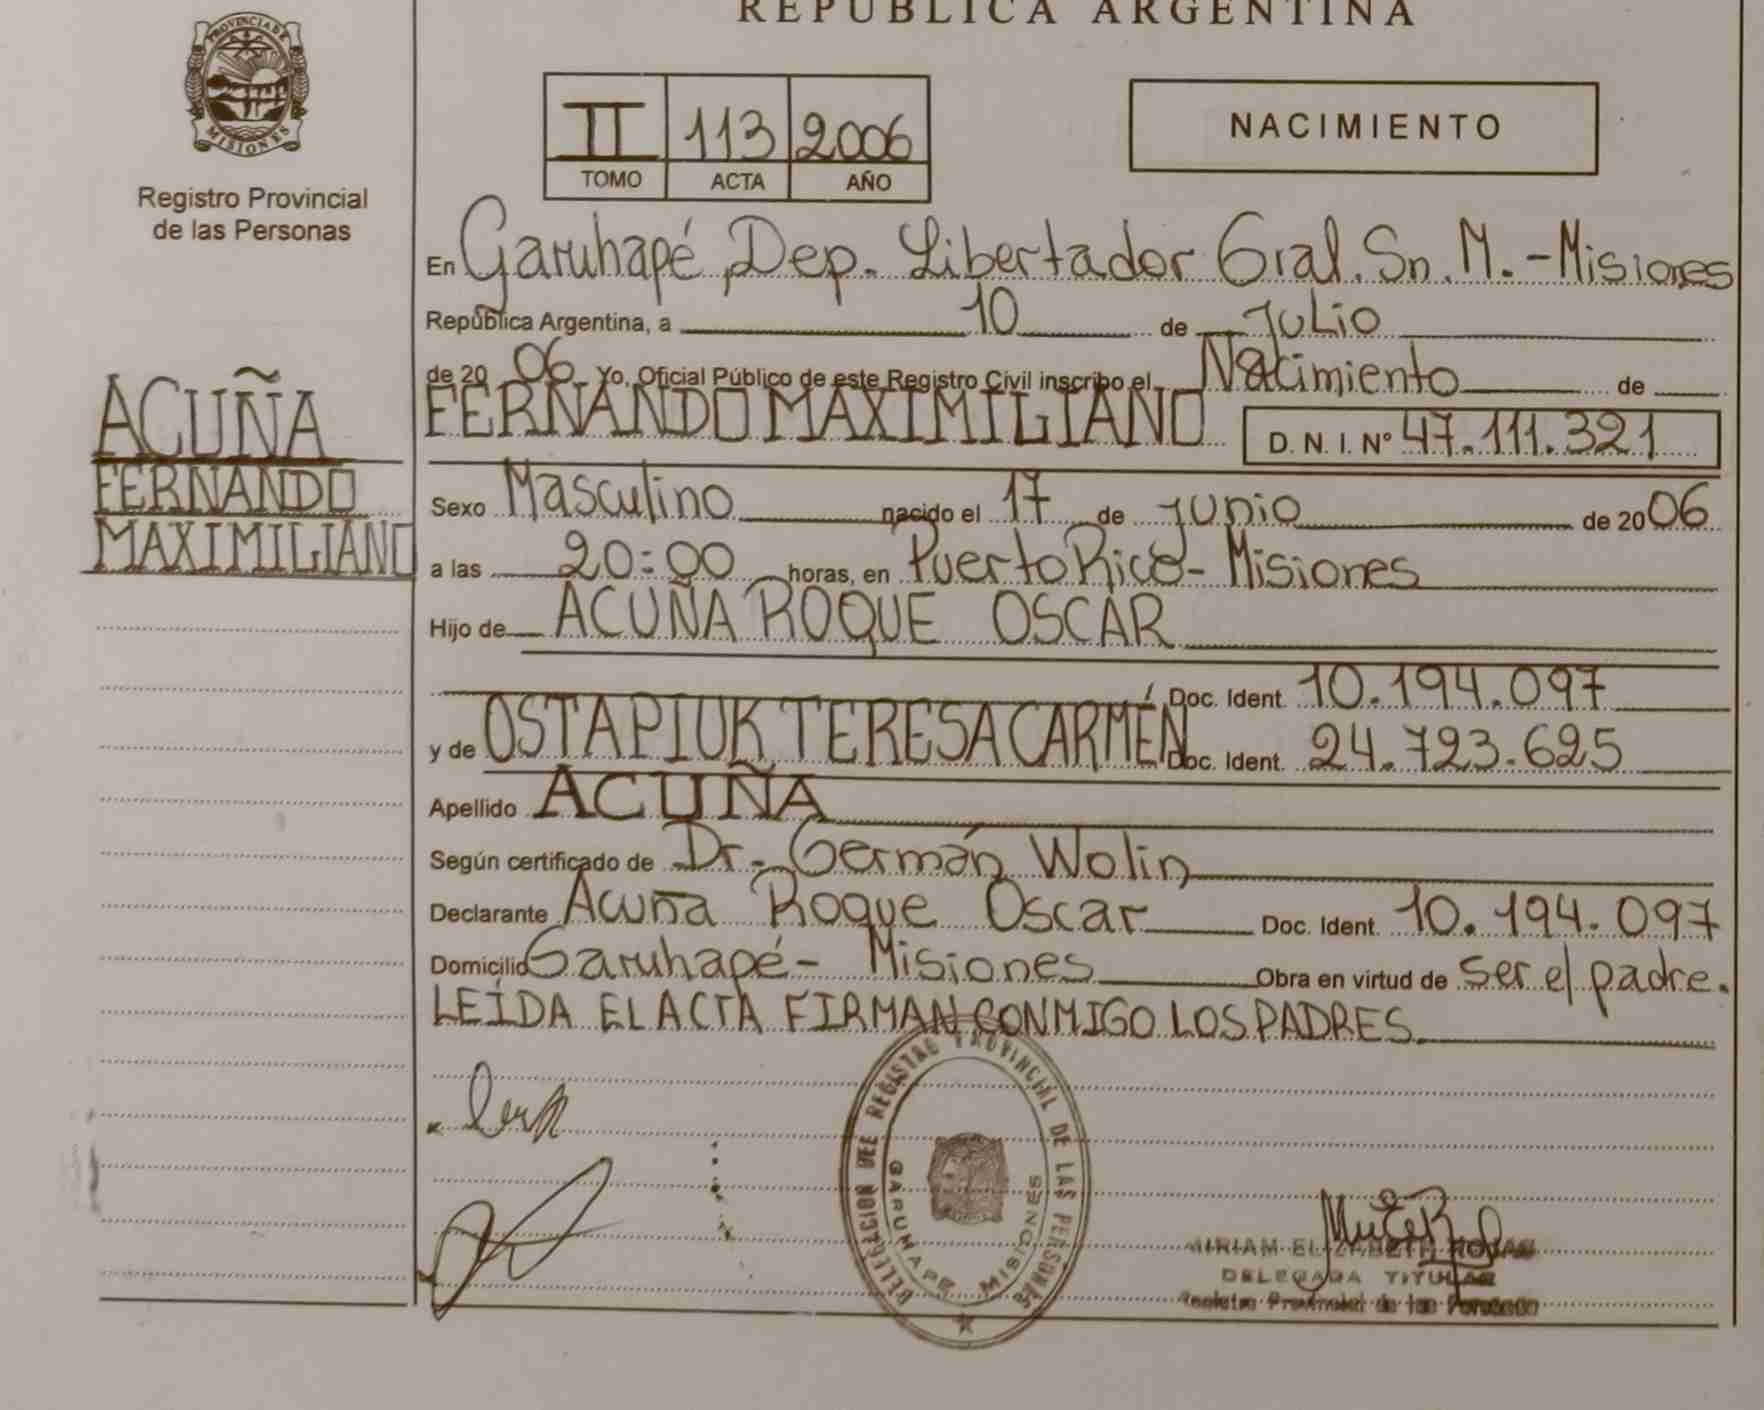 REPÚBLICA ARGENTINA
PROVINCIA DE
MISIONES
Registro Provincial
de las Personas
II 113 2006
TOMO ACTA AÑO
NACIMIENTO
En Garuhapé, Dep. Libertador Gral. Sn. M. - Misiones
República Argentina, a 10 de Julio
de 20 06 Yo, Oficial Público de este Registro Civil inscribo el Nacimiento de
FERNANDO MAXIMILIANO D. N. I. Nº 47.111.321
ACUÑA
FERNANDO
MAXIMILIANO
Sexo Masculino nacido el 17 de junio de 20 06
a las 20:00 horas, en Puerto Rico - Misiones
Hijo de ACUÑA ROQUE OSCAR
Doc. Ident. 10.194.097
y de OSTAPIUK TERESA CARMEN Doc. Ident. 24.723.625
Apellido ACUÑA
Según certificado de Dr. Germán Wolin
Declarante Acuña Roque Oscar Doc. Ident. 10.194.097
Domicilio Garuhapé - Misiones Obra en virtud de ser el padre.
LEÍDA EL ACTA FIRMAN CONMIGO LOS PADRES.
DELEGACION DEL REGISTRO PROVINCIAL DE LAS PERSONAS
GARUHAPE MISIONES
MIRIAM ELIZABETH ROJAS
DELEGADA TITULAR
Registro Provincial de las Personas